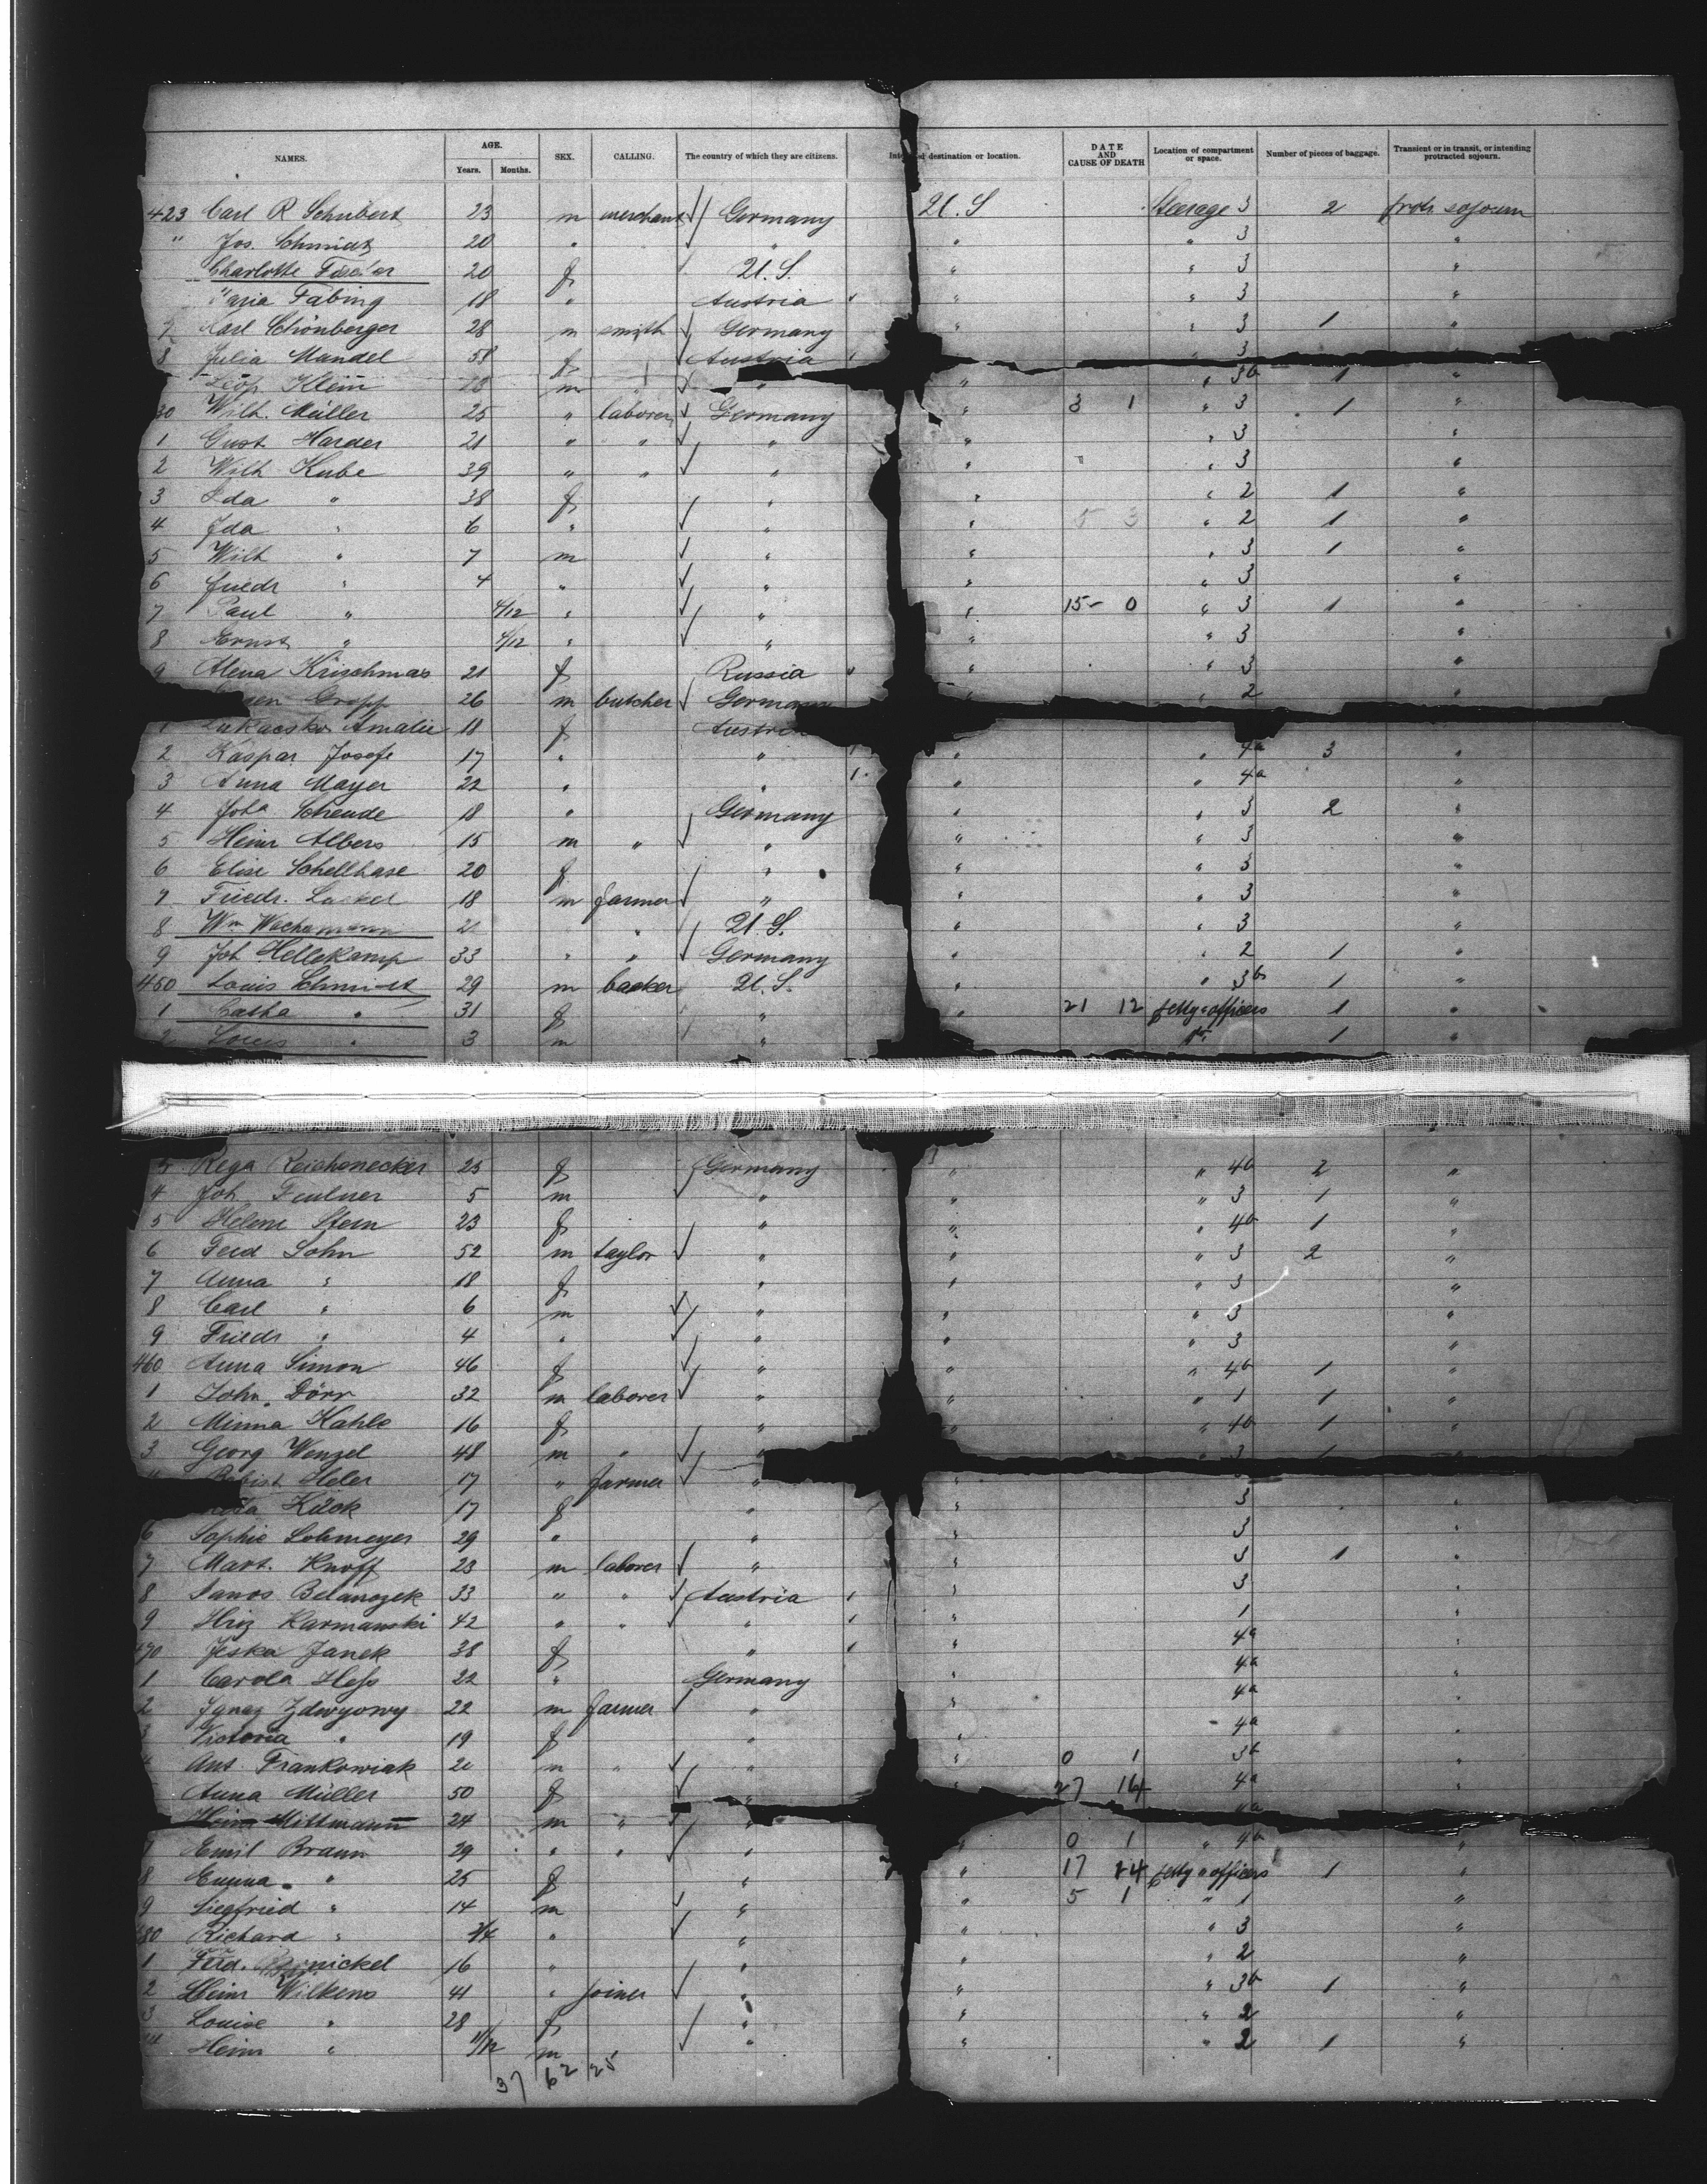 NAMES. AGE. Years. Months. SEX. CALLING. The country of which they are citizens. destination or location. DATE AND CAUSE OF DEATH Location of compartment or space. Number of pieces of baggage. Transient or in transit, or intending protracted sojourn.
423 Carl R Schubert 23 m merchant Germany U.S Steerage 3 2 protr sojourn
" Jos. Schmidt 20 " " " " 3 "
Charlotte 20 f U.S. " " 3 "
Maria Fabing 18 " Austria " " 3 "
7 Karl Schönberger 28 m smith Germany " " 3 1 "
8 Julia Mandel 58 f Austria 3
Leop Klein 28 m " " " " 3b 1 "
30 Wilh. Müller 25 " laborer Germany " 3 1 " 3 1 "
1 Gust Harder 21 " " " " " 3 "
2 Wilh Kube 39 " " " " " 3 "
3 Ida " 38 f " " " 2 1 "
4 Ida " 6 " " " 5 3 " 2 1 "
5 Wilh " 7 m " " " 3 1 "
6 Friedr " 4 " " " " 3 "
7 Paul " 4/12 " " " 15- 0 " 3 1 "
8 Ernst " 4/12 " " " " 3 "
9 Alena Krischmar 21 f Russia " " 3 "
Gropp 26 m butcher Germany " 2 "
1 Amalie 18 f Austria
2 Kaspar Josefe 17 " " " " 4a 3 "
3 Anna Mayer 22 " " " " 4a "
4 Joha Scheude 18 " Germany " " 3 2 "
5 Heinr Albers 15 m " " " " 3 "
6 Elise Schellhase 20 f " " " 3 "
7 Friedr. 18 m farmer " " " 3 "
8 Wm Wachsmann 21 " U.S. " " 3 "
9 Joh Hellekamp 33 " " Germany " " 2 1 "
450 Louis Schmidt 29 m backer U.S. " " 3b 1 "
1 Catha " 31 f " " 21 12 petty officers 1 "
2 Louis " 3 m " 1 "
3 Rega Reichenecker 25 f Germany " " 4b 2 "
4 Joh Feulner 5 m " " " 3 1 "
5 Helene Stern 23 f " " " 4b 1 "
6 Ferd Sohn 52 m taylor " " " 3 2 "
7 Anna " 18 f " " " 3 "
8 Carl " 6 m " " " 3 "
9 Friedr " 4 " " " " 3 "
460 Anna Simon 46 f " " " 4b 1 "
1 John Dörr 32 m laborer " " " 1 1 "
2 Minna Kahle 16 f " " " 4b 1 "
3 Georg Wenzel 48 m " " 3 1
Heler 17 " farmer " "
Kück 17 f " " 3 "
6 Sophie Lohmeyer 29 " " " 3 "
7 Mart. Knoff 23 m laborer " " 3 1 "
8 Janos Belanszek 33 " " Austria " 3 "
9 Hriz Karmanski 42 " " " " 1 "
470 Jeska Janek 38 f " " 4a "
1 Carola Hess 22 " Germany " 4a "
2 Ignaz Zdwyowy 22 m farmer " " 4a "
3 Victoria " 19 f " " 4a "
4 Ant Frankowiak 20 m " " " 0 1 3b "
Anna Müller 50 f " " 27 14 4a "
Mittmann 24 m " "
7 Emil Braun 29 " " " " 0 1 " 4b "
8 Emma " 25 f " " 17 24 petty officers 1 "
9 Siegfried " 14 m " " 5 1 " 1 "
480 Richard " 3/4 " " " " 3 "
1 Ferd. 16 " " " " 2 "
2 Heinr Wilkens 41 " joiner " " " 3b 1 "
3 Louise " 28 f " " " 2 "
4 Heinr " 11/12 m " " " 2 1 "
37 62 25